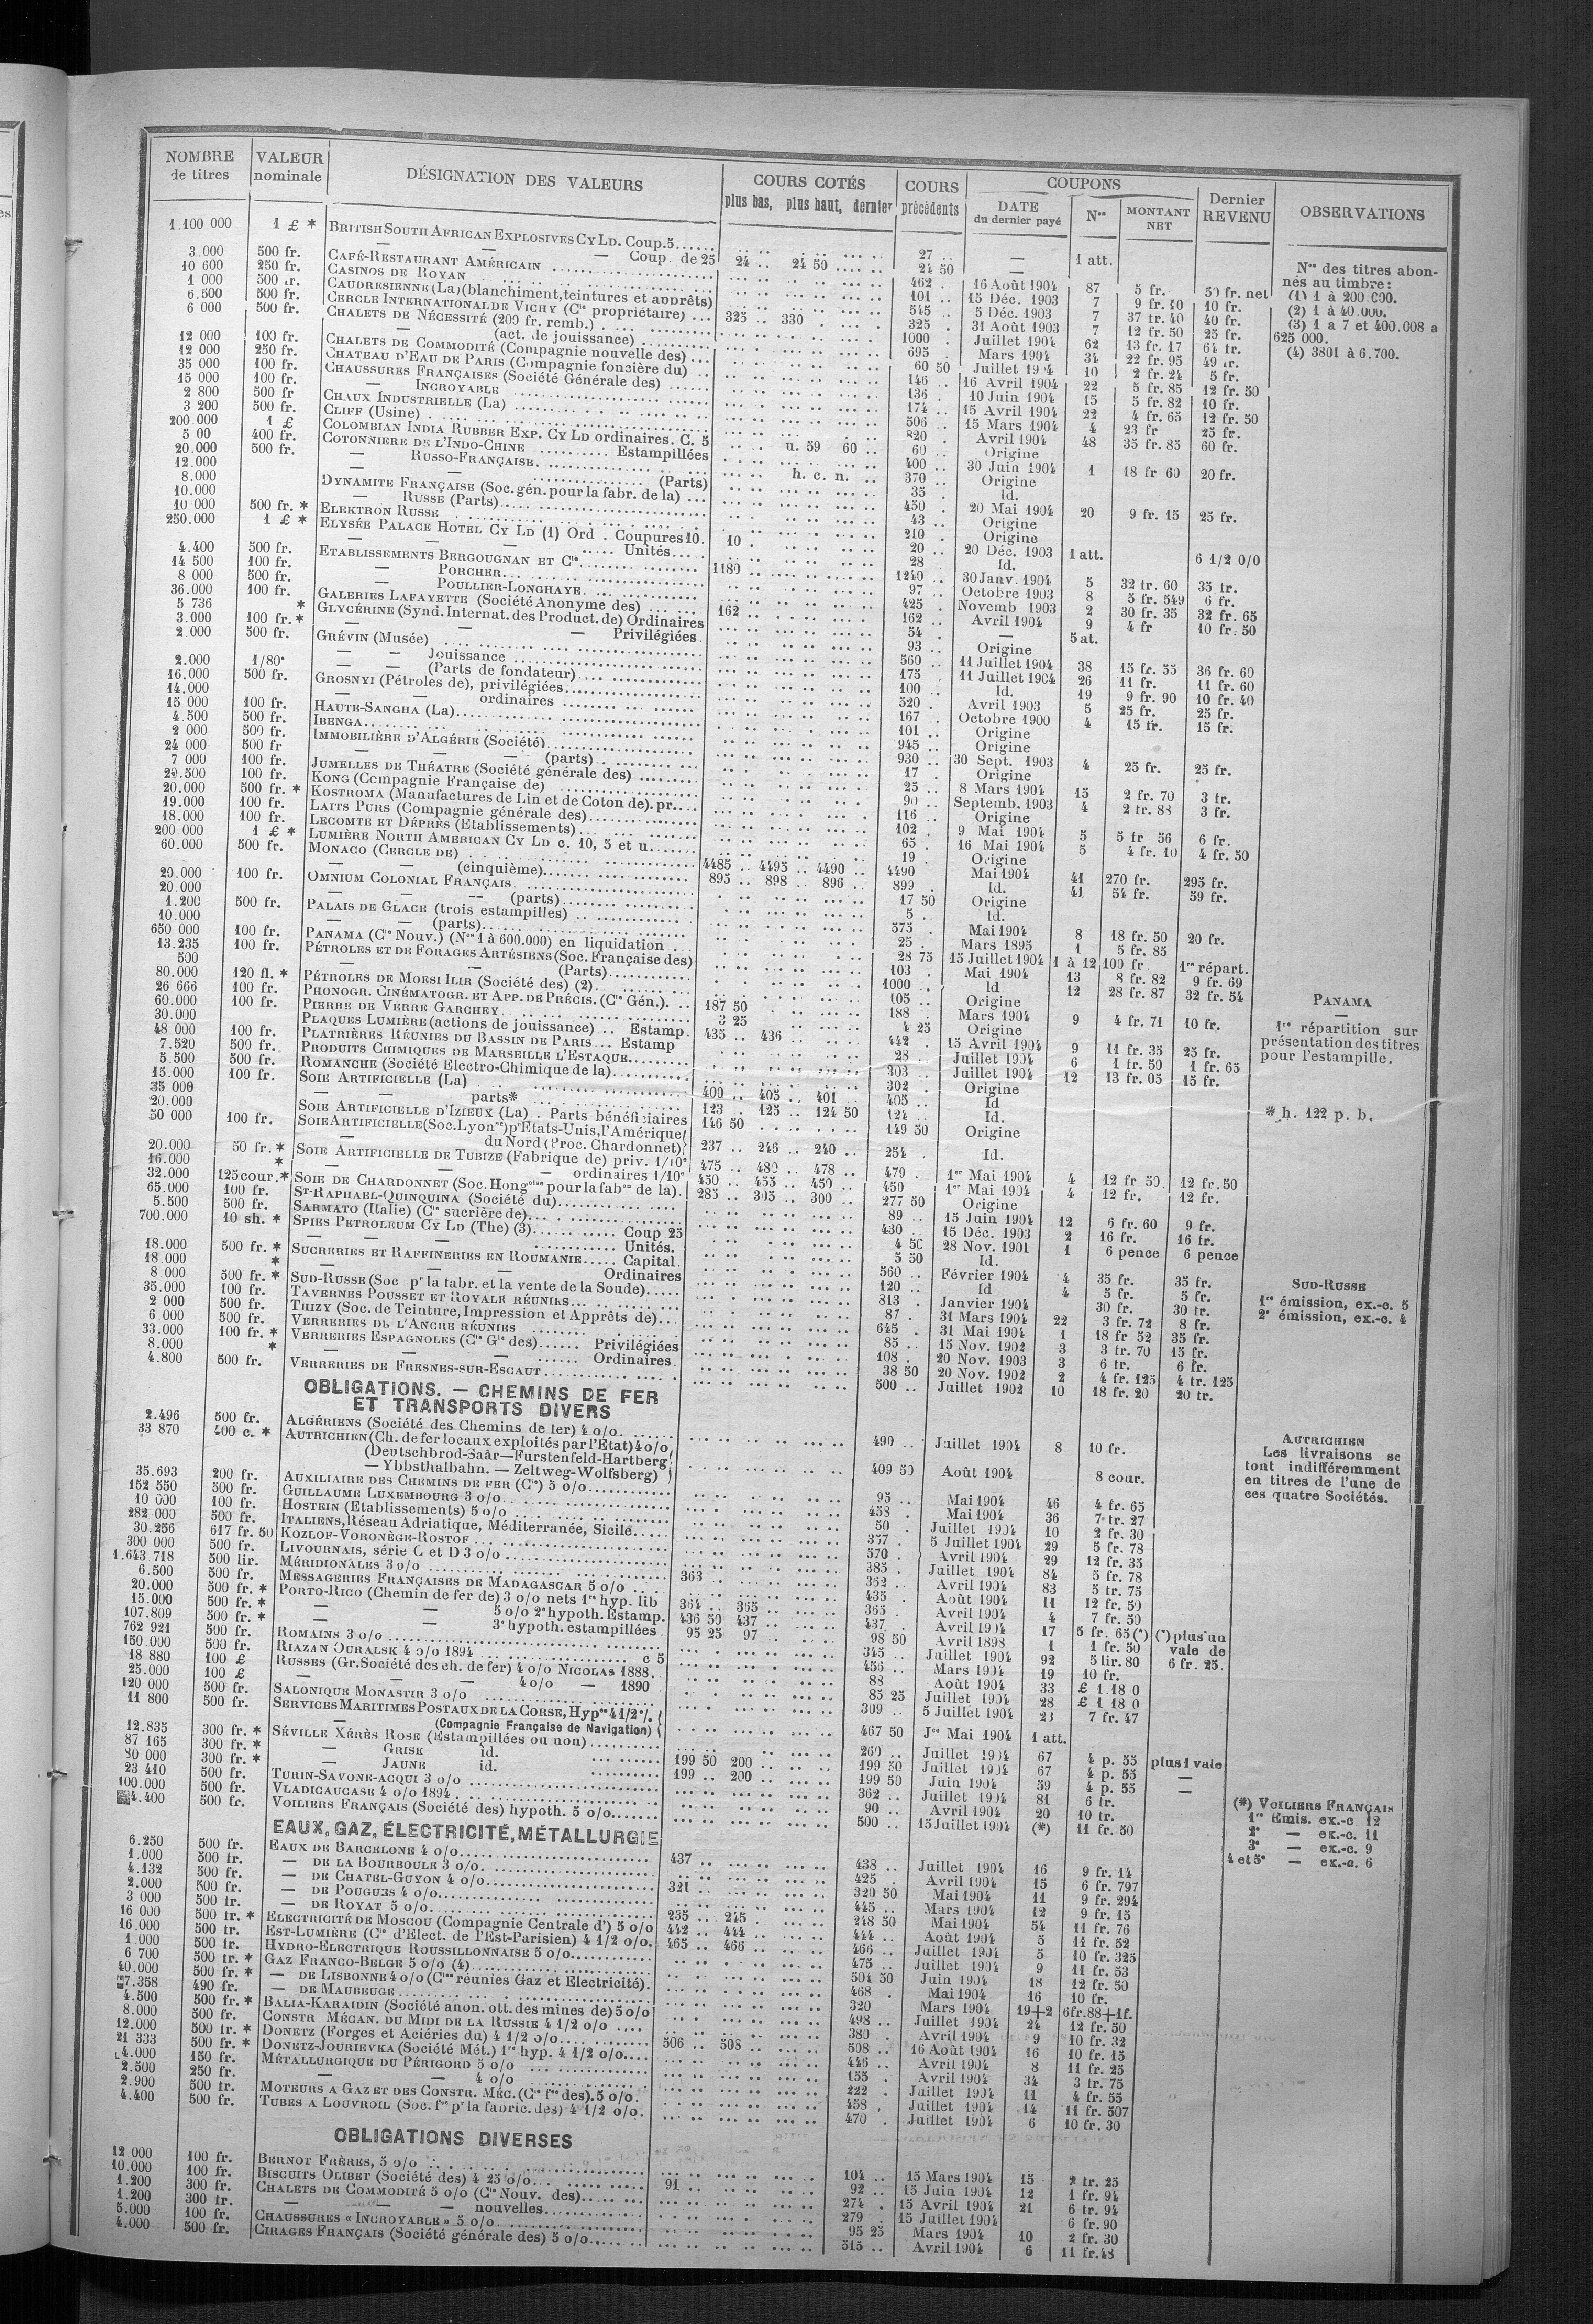 NOMBRE de titres | VALEUR nominale | DÉSIGNATION DES VALEURS | COURS COTÉS plus bas, plus haut, dernier | COURS précédents | COUPONS DATE du dernier payé | Nos | MONTANT NET | Dernier REVENU | OBSERVATIONS
1.100 000 1 £ * BRITISH SOUTH AFRICAN EXPLOSIVES CY LD. Coup. 5 27 — 1 att.
— — — Coup. de 25 24 24 50 24 50 —
3.000 500 fr. CAFÉ-RESTAURANT AMÉRICAIN 462 16 Août 1904 87 5 fr. 50 fr. net
10 600 250 fr. CASINOS DE ROYAN 101 15 Déc. 1903 7 9 fr. 40 10 fr.
1 000 500 fr. CAUDRESIENNE (La) (blanchiment, teintures et apprêts) 545 5 Déc. 1903 7 37 fr. 40 40 fr.
6.500 500 fr. CERCLE INTERNATIONAL DE VICHY (Cie propriétaire) 325 330 325 31 Août 1903 7 12 fr. 50 25 fr.
6 000 500 fr. CHALETS DE NÉCESSITÉ (200 fr. remb.) 1000 Juillet 1904 62 13 fr. 17 64 fr.
— (act. de jouissance) 695 Mars 1904 34 22 fr. 95 49 fr.
12 000 100 fr. CHALETS DE COMMODITÉ (Compagnie nouvelle des) 60 50 Juillet 1904 10 2 fr. 24 5 fr.
12 000 250 fr. CHATEAU D'EAU DE PARIS (Compagnie foncière du) 146 16 Avril 1904 22 5 fr. 85 12 fr. 50
35 000 100 fr. CHAUSSURES FRANÇAISES (Société Générale des) 136 10 Juin 1904 15 5 fr. 82 10 fr.
15 000 100 fr. — INCROYABLE 174 15 Avril 1904 22 4 fr. 65 12 fr. 50
2 800 500 fr CHAUX INDUSTRIELLE (La) 506 15 Mars 1904 4 23 fr 25 fr.
3 200 500 fr. CLIFF (Usine) 820 Avril 1904 48 35 fr. 85 60 fr.
200.000 1 £ COLOMBIAN INDIA RUBBER EXP. CY LD ordinaires. C. 5 u. 59 60 60 Origine
5 00 400 fr. COTONNIERE DE L'INDO-CHINE Estampillées 400 30 Juin 1904 1 18 fr 60 20 fr.
20.000 500 fr. — RUSSO-FRANÇAISE h. c. n. 370 Origine
12.000 — — (Parts) 35 Id.
8.000 DYNAMITE FRANÇAISE (Soc. gén. pour la fabr. de la) 450 20 Mai 1904 20 9 fr. 15 25 fr.
10.000 — RUSSE (Parts) 43 Origine
10 000 500 fr. * ELEKTRON RUSSE 210 Origine
250.000 1 £ * ELYSÉE PALACE HOTEL CY LD (1) Ord. Coupures 10. 10 20 20 Déc. 1903 1 att. 6 1/2 0/0
— — — Unités 28 Id.
4.400 500 fr. ETABLISSEMENTS BERGOUGNAN ET Cie 1180 1240 30 Janv. 1904 5 32 fr. 60 35 fr.
14 500 100 fr. — PORCHER 97 Octobre 1903 8 5 fr. 549 6 fr.
8 000 500 fr. — POULLIER-LONGHAYE 425 Novemb 1903 2 30 fr. 35 32 fr. 65
36.000 100 fr. GALERIES LAFAYETTE (Société Anonyme des) 162 162 Avril 1904 9 4 fr 10 fr. 50
5 736 * GLYCÉRINE (Synd. Internat. des Product. de) Ordinaires 54 — 5 at.
3.000 100 fr. * — — Privilégiées 93 Origine
2.000 500 fr. GRÉVIN (Musée) 560 11 Juillet 1904 38 15 fr. 55 36 fr. 60
— — Jouissance 175 11 Juillet 1904 26 11 fr. 11 fr. 60
2.000 1/80e — — (Parts de fondateur) 100 Id. 19 9 fr. 90 10 fr. 40
16.000 500 fr. GROSNYI (Pétroles de), privilégiées 520 Avril 1903 5 25 fr. 25 fr.
14.000 — — ordinaires 167 Octobre 1900 4 15 fr. 15 fr.
15 000 100 fr. HAUTE-SANGHA (La) 101 Origine
4.500 500 fr. IBENGA 945 Origine
2 000 500 fr. IMMOBILIÈRE D'ALGÉRIE (Société) 930 30 Sept. 1903 4 25 fr. 25 fr.
24 000 500 fr — — — (parts) 17 Origine
7 000 100 fr. JUMELLES DE THÉATRE (Société générale des) 25 8 Mars 1904 15 2 fr. 70 3 fr.
29.500 100 fr. KONG (Compagnie Française de) 90 Septemb. 1903 4 2 fr. 88 3 fr.
20.000 500 fr. * KOSTROMA (Manufactures de Lin et de Coton de). pr. 116 Origine
19.000 100 fr. LAITS PURS (Compagnie générale des) 102 9 Mai 1904 5 5 fr 56 6 fr.
18.000 100 fr. LECOMTE ET DÉPRÈS (Etablissements) 65 16 Mai 1904 5 4 fr. 10 4 fr. 50
200.000 1 £ * LUMIÈRE NORTH AMERICAN CY LD c. 10, 5 et u. 19 Origine
60.000 500 fr. MONACO (CERCLE DE) 4485 4495 4490 4490 Mai 1904 41 270 fr. 295 fr.
— — (cinquième) 895 898 896 899 Id. 41 54 fr. 59 fr.
29.000 100 fr. OMNIUM COLONIAL FRANÇAIS 17 50 Origine
20.000 — — (parts) 5 Id.
1.200 500 fr. PALAIS DE GLACE (trois estampilles) 575 Mai 1904 8 18 fr. 50 20 fr.
10.000 — — (parts) 25 Mars 1895 1 5 fr. 85
650 000 100 fr. PANAMA (Cie Nouv.) (Nos 1 à 600.000) en liquidation 28 75 15 Juillet 1904 1 à 12 100 fr 1re répart.
13.235 100 fr. PÉTROLES ET DE FORAGES ARTÉSIENS (Soc. Française des) 103 Mai 1904 13 8 fr. 82 9 fr. 69
500 — — (Parts) 1000 Id 12 28 fr. 87 32 fr. 54
80.000 120 fl. * PÉTROLES DE MOESI ILIR (Société des) (2) 105 Origine
26 666 100 fr. PHONOGR. CINÉMATOGR. ET APP. DE PRÉCIS. (Cie Gén.) 187 50 188 Mars 1904 9 4 fr. 71 10 fr.
60.000 100 fr. PIERRE DE VERRE GARCHEY 3 25 4 25 Origine
30.000 PLAQUES LUMIÈRE (actions de jouissance) Estamp. 435 436 442 15 Avril 1904 9 11 fr. 35 25 fr.
48 000 100 fr. PLATRIÈRES RÉUNIES DU BASSIN DE PARIS Estamp 28 Juillet 1904 6 1 fr. 50 1 fr. 65
7.520 500 fr. PRODUITS CHIMIQUES DE MARSEILLE L'ESTAQUE 303 Juillet 1904 12 13 fr. 05 15 fr.
5.500 500 fr. ROMANCHE (Société Electro-Chimique de la) 302 Origine
15.000 100 fr. SOIE ARTIFICIELLE (La) 400 405 401 405 Id
35 000 — parts* 123 125 124 50 124 Id.
20.000 SOIE ARTIFICIELLE D'IZIEUX (La) Parts bénéficiaires 146 50 149 50 Origine
50 000 100 fr. SOIE ARTIFICIELLE (Soc. Lyonse) p' Etats-Unis, l'Amérique
du Nord (Proc. Chardonnet) 237 246 240 254 Id.
20.000 50 fr. * SOIE ARTIFICIELLE DE TUBIZE (Fabrique de) priv. 1/10e 475 480 478 479 1er Mai 1904 4 12 fr 50 12 fr. 50
16.000 * — — — ordinaires 1/10e 450 455 450 450 1er Mai 1904 4 12 fr. 12 fr.
32.000 125 cour. * SOIE DE CHARDONNET (Soc. Hongoise pour la fabon de la) 285 305 300 277 50 Origine
65.000 100 fr. ST-RAPHAEL-QUINQUINA (Société du) 89 15 Juin 1904 12 6 fr. 60 9 fr.
5.500 500 fr. SARMATO (Italie) (Cie sucrière de) 430 15 Déc. 1903 2 16 fr. 16 fr.
700.000 10 sh. * SPIES PETROLEUM CY LD (The) (3) Coup 25 4 50 28 Nov. 1901 1 6 pence 6 pence
— — — Unités. 5 50 Id.
18.000 500 fr. * SUCRERIES ET RAFFINERIES EN ROUMANIE Capital 560 Février 1904 4 35 fr. 35 fr.
18 000 * — — — Ordinaires 120 Id 4 5 fr. 5 fr.
8 000 500 fr. * SUD-RUSSE (Soc pr la fabr. et la vente de la Soude) 813 Janvier 1904 30 fr. 30 fr.
35.000 100 fr. TAVERNES POUSSET ET ROYALE RÉUNIES 87 31 Mars 1904 22 3 fr. 72 8 fr.
2 000 500 fr. THIZY (Soc. de Teinture, Impression et Apprêts de) 645 31 Mai 1904 1 18 fr 52 35 fr.
6 000 500 fr. VERRERIES DE L'ANCRE RÉUNIES 85 15 Nov. 1902 3 3 fr. 70 15 fr.
33.000 100 fr. * VERRERIES ESPAGNOLES (Cie Gle des) Privilégiées 108 20 Nov. 1903 3 6 fr. 6 fr.
8.000 * — — Ordinaires 38 50 20 Nov. 1902 2 4 fr. 125 4 fr. 125
4.800 500 fr. VERRERIES DE FRESNES-SUR-ESCAUT 500 Juillet 1902 10 18 fr. 20 20 fr.
OBLIGATIONS. — CHEMINS DE FER
ET TRANSPORTS DIVERS
2.496 500 fr. ALGÉRIENS (Société des Chemins de fer) 4 o/o 490 Juillet 1904 8 10 fr.
33 870 400 c. * AUTRICHIEN (Ch. de fer locaux exploités par l'Etat) 4 o/o
(Deutschbrod-Saâr—Furstenfeld-Hartberg
— Ybbsthalbahn. — Zeltweg-Wolfsberg) 409 50 Août 1904 8 cour.
35.693 200 fr. AUXILIAIRE DES CHEMINS DE FER (Cie) 5 o/o 95 Mai 1904 46 4 fr. 65
152 550 500 fr. GUILLAUME LUXEMBOURG 3 o/o 458 Mai 1904 36 7 fr. 27
10 000 100 fr. HOSTEIN (Etablissements) 5 o/o 50 Juillet 1904 10 2 fr. 30
282 000 500 fr. ITALIENS, Réseau Adriatique, Méditerranée, Sicile 357 5 Juillet 1904 29 5 fr. 78
30.256 617 fr. 50 KOZLOF-VORONÈGE-ROSTOF 570 Avril 1904 29 12 fr. 35
300 000 500 fr. LIVOURNAIS, série C et D 3 o/o 385 Juillet 1904 84 5 fr. 78
1.643 718 500 lir. MÉRIDIONALES 3 o/o 363 362 Avril 1904 83 5 fr. 75
6.500 500 fr. MESSAGERIES FRANÇAISES DE MADAGASCAR 5 o/o 435 Août 1904 11 12 fr. 50
20.000 500 fr. * PORTO-RICO (Chemin de fer de) 3 o/o nets 1re hyp. lib 364 365 365 Avril 1904 4 7 fr. 50
15.000 500 fr. * — — 5 o/o 2e hypoth. Estamp. 436 50 437 437 Avril 1904 17 5 fr. 65(*) (*) plus un
107.809 500 fr. * — — 3e hypoth. estampillées 95 25 97 98 50 Avril 1898 1 1 fr. 50 vale de
762 921 500 fr. ROMAINS 3 o/o 345 Juillet 1904 92 5 lir. 80 6 fr. 25.
150.000 500 fr. RIAZAN OURALSK 4 o/o 1894 c 5 456 Mars 1904 19 10 fr.
18 880 100 £ RUSSES (Gr. Société des ch. de fer) 4 o/o NICOLAS 1888. 88 Août 1904 33 £ 1.18 0
25.000 100 £ — — 4 o/o — 1890 85 25 Juillet 1904 28 £ 1 18 0
120 000 500 fr. SALONIQUE MONASTIR 3 o/o 309 5 Juillet 1904 23 7 fr. 47
11 800 500 fr. SERVICES MARITIMES POSTAUX DE LA CORSE, Hypes 4 1/2 %
(Compagnie Française de Navigation) 467 50 Jce Mai 1904 1 att.
12.835 300 fr. * SÉVILLE XÉRÈS ROSE (Estampillées ou non) 260 Juillet 1904 67 4 p. 55 plus 1 vale
87 165 300 fr. * — GRISE id. 199 50 200 199 50 Juillet 1904 67 4 p. 55 —
80 000 300 fr. * — JAUNE id. 199 200 199 50 Juin 1904 59 4 p. 55 —
23 410 500 fr. TURIN-SAVONE-ACQUI 3 o/o 362 Juillet 1904 81 6 fr.
100.000 500 fr. VLADICAUCASE 4 o/o 1894 90 Avril 1904 20 10 fr.
4.400 500 fr. VOILIERS FRANÇAIS (Société des) hypoth. 5 o/o 500 15 Juillet 1904 (*) 11 fr. 50
EAUX, GAZ, ÉLECTRICITÉ, MÉTALLURGIE
6.250 500 fr. EAUX DE BARCELONE 4 o/o 437 438 Juillet 1904 16 9 fr. 14
1.000 500 fr. — DE LA BOURBOULE 3 o/o 425 Avril 1904 15 6 fr. 797
4.132 500 fr. — DE CHATEL-GUYON 4 o/o 321 320 50 Mai 1904 11 9 fr. 294
2.000 500 fr. — DE POUGUES 4 o/o 445 Mars 1904 12 9 fr. 15
3 000 500 fr. — DE ROYAT 5 o/o 235 245 248 50 Mai 1904 54 11 fr. 76
16 000 500 fr. * ELECTRICITÉ DE MOSCOU (Compagnie Centrale d') 5 o/o 442 444 444 Août 1904 5 11 fr. 52
16.000 500 fr. EST-LUMIÈRE (Cie d'Elect. de l'Est-Parisien) 4 1/2 o/o. 465 466 466 Juillet 1904 5 10 fr. 325
1.000 500 fr. HYDRO-ELECTRIQUE ROUSSILLONNAISE 5 o/o 475 Juillet 1904 9 11 fr. 53
6 700 500 fr. * GAZ FRANCO-BELGE 5 o/o (4) 501 50 Juin 1904 18 12 fr. 50
40.000 500 fr. * — DE LISBONNE 4 o/o (Cies réunies Gaz et Electricité). 468 Mai 1904 16 10 fr.
7.358 490 fr. — DE MAUBEUGE 320 Mars 1904 19+2 6fr.88+1f.
4.500 500 fr. * BALIA-KARAIDIN (Société anon. ott. des mines de) 5 o/o 498 Juillet 1904 24 12 fr. 50
8.000 500 fr. CONSTR MÉCAN. DU MIDI DE LA RUSSIE 4 1/2 o/o 380 Avril 1904 9 10 fr. 32
12.000 500 fr. * DONETZ (Forges et Aciéries du) 4 1/2 o/o 506 508 508 16 Août 1904 16 10 fr. 15
21 333 500 fr. * DONETZ-JOURIEVKA (Société Mét.) 1re hyp. 4 1/2 o/o 446 Avril 1904 8 11 fr. 25
4.000 150 fr. MÉTALLURGIQUE DU PÉRIGORD 5 o/o 155 Avril 1904 34 3 fr. 75
2.500 250 fr. — — 4 o/o 222 Juillet 1904 11 4 fr. 55
2.900 500 fr. MOTEURS A GAZ ET DES CONSTR. MÉC. (Cie fse des). 5 o/o. 458 Juillet 1904 14 11 fr. 507
4.400 500 fr. TUBES A LOUVROIL (Soc. fse pr la fabric. des) 4 1/2 o/o. 470 Juillet 1904 6 10 fr. 30
OBLIGATIONS DIVERSES
12 000 100 fr. BERNOT FRÈRES, 5 o/o 104 15 Mars 1904 15 2 fr. 25
10.000 100 fr. BISCUITS OLIBET (Société des) 4 25 o/o 91 92 15 Juin 1904 12 1 fr. 94
1.200 300 fr. CHALETS DE COMMODITÉ 5 o/o (Cie Nouv. des) 274 15 Avril 1904 21 6 fr. 94
1.200 300 fr. — — — nouvelles 279 15 Juillet 1904 6 fr. 90
5.000 100 fr. CHAUSSURES « INCROYABLE » 5 o/o 95 25 Mars 1904 10 2 fr. 30
4.000 500 fr. CIRAGES FRANÇAIS (Société générale des) 5 o/o 515 Avril 1904 6 11 fr. 48
Nos des titres abonnés au timbre:
(1) 1 à 200.000.
(2) 1 à 40.000.
(3) 1 a 7 et 400.008 a
625 000.
(4) 3801 à 6.700.
PANAMA
—
1re répartition sur
présentation des titres
pour l'estampille.
* h. 122 p. b.
SUD-RUSSE
1re émission, ex.-c. 5
2e émission, ex.-c. 4
AUTRICHIEN
Les livraisons se
font indifféremment
en titres de l'une de
ces quatre Sociétés.
(*) VOILIERS FRANÇAIS
1re Emis. ex.-c 12
2e — ex.-c. 11
3e — ex.-c. 9
4 et 5e — ex.-c. 6